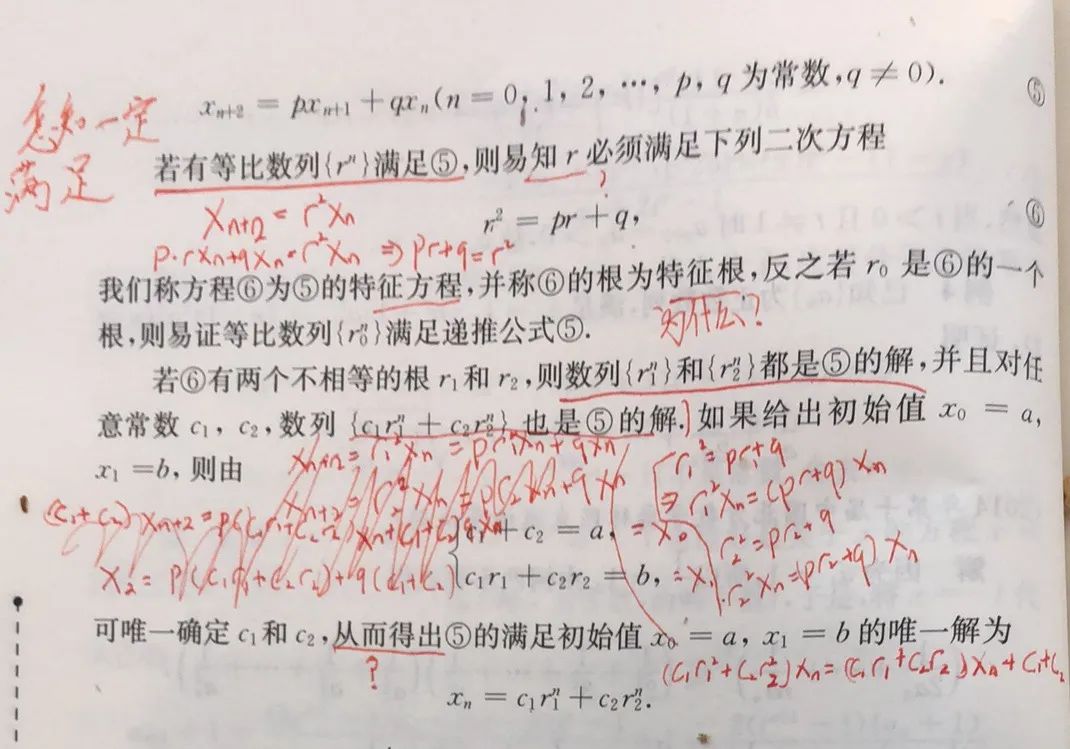 xₙ₊₂ = pxₙ₊₁ + qxₙ(n = 0, 1, 2, …, p, q 为常数,q ≠ 0). ⑤
怎知一定
满足
若有等比数列{rⁿ}满足⑤,则易知 r 必须满足下列二次方程
?
Xₙ₊₂ = r²Xₙ
r² = pr + q, ⑥
p·rXₙ+qXₙ=r²Xₙ ⇒ pr+q=r²
我们称方程⑥为⑤的特征方程,并称⑥的根为特征根,反之若 r₀ 是⑥的一个
根,则易证等比数列{r₀ⁿ}满足递推公式⑤.
为什么?
若⑥有两个不相等的根 r₁ 和 r₂,则数列{r₁ⁿ}和{r₂ⁿ}都是⑤的解,并且对任
意常数 c₁, c₂,数列 {c₁r₁ⁿ + c₂r₂ⁿ} 也是⑤的解.] 如果给出初始值 x₀ = a,
x₁ = b, 则由
Xₙ₊₂ = r₁²Xₙ = pr₁Xₙ + qXₙ
r₁² = pr₁+q
Xₙ₊₂ = r₂²Xₙ = pr₂Xₙ+qXₙ
⇒ r₁²Xₙ = (pr₁+q)Xₙ
c₁ + c₂ = a, = X₀
r₂² = pr₂+q
X₂ = p(c₁r₁+c₂r₂)+q(c₁+c₂)
c₁r₁ + c₂r₂ = b, = X₁
r₂²Xₙ=(pr₂+q)Xₙ
可唯一确定 c₁ 和 c₂,从而得出⑤的满足初始值 x₀ = a, x₁ = b 的唯一解为
?
(c₁r₁²+c₂r₂²)Xₙ=(c₁r₁+c₂r₂)Xₙ+c₁+c₂
xₙ = c₁r₁ⁿ + c₂r₂ⁿ.